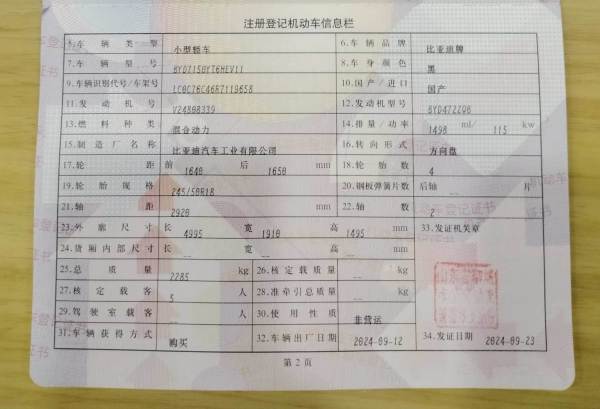 注册登记机动车信息栏
5.车辆类型 小型轿车 6.车辆品牌 比亚迪牌
7.车辆型号 BYD7150BYT6HEV11 8.车身颜色 黑
9.车辆识别代号/车架号 LC0C76C46R7119658 10.国产/进口 国产
11.发动机号 V24898339 12.发动机型号 BYD472ZQB
13.燃料种类 混合动力 14.排量/功率 1498 ml/ 115 kw
15.制造厂名称 比亚迪汽车工业有限公司 16.转向形式 方向盘
17.轮距 前 1640 后 1650 mm 18.轮胎数 4
19.轮胎规格 245/50R18 20.钢板弹簧片数 后轴 -- 片
21.轴距 2920 mm 22.轴数 2
23.外廓尺寸 长 4995 宽 1910 高 1495 mm 33.发证机关章
24.货厢内部尺寸 长 -- 宽 -- 高 -- mm
25.总质量 2285 kg 26.核定载质量 -- kg
27.核定载客 5 人 28.准牵引总质量 -- kg
29.驾驶室载客 -- 人 30.使用性质 非营运
31.车辆获得方式 购买 32.车辆出厂日期 2024-09-12 34.发证日期 2024-09-23
第 2 页